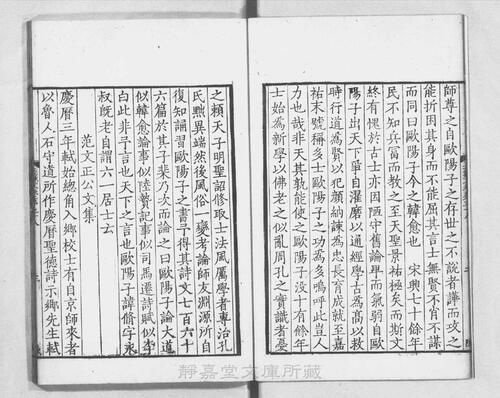 師尊之自歐陽子之存世之不說者譁而攻之
能折困其身而不能屈其言士無賢不肖不謀
而同曰歐陽子今之韓愈也 宋興七十餘年
民不知兵冨而教之至天聖景祐極矣而斯文
終有愧於古士亦因陋守舊論卑而氣弱自歐
陽子出天下爭自濯磨以通經學古為高以救
時行道為賢以犯顔納諫為忠長育成就至嘉
祐末號稱多士歐陽子之功為多嗚呼此豈人
力也哉非天其孰能使之歐陽子沒十有餘年
士始為新學以佛老之似亂周孔之實識者憂
之賴天子明聖詔修取士法風厲學者專治孔
氏黜異端然後風俗一變考論師友淵源所自
復知誦習歐陽子之書予得其詩文七百六十
六篇於其子棐乃次而論之曰歐陽子論大道
似韓愈論事似陸贄記事似司馬遷詩賦似李
白此非予言也天下之言也歐陽子諱脩字永
叔旣老自謂六一居士云
范文正公文集
慶曆三年軾始總角入鄉校士有自京師來者
以魯人石守道所作慶曆聖德詩示鄉先生軾
靜嘉堂文庫所藏